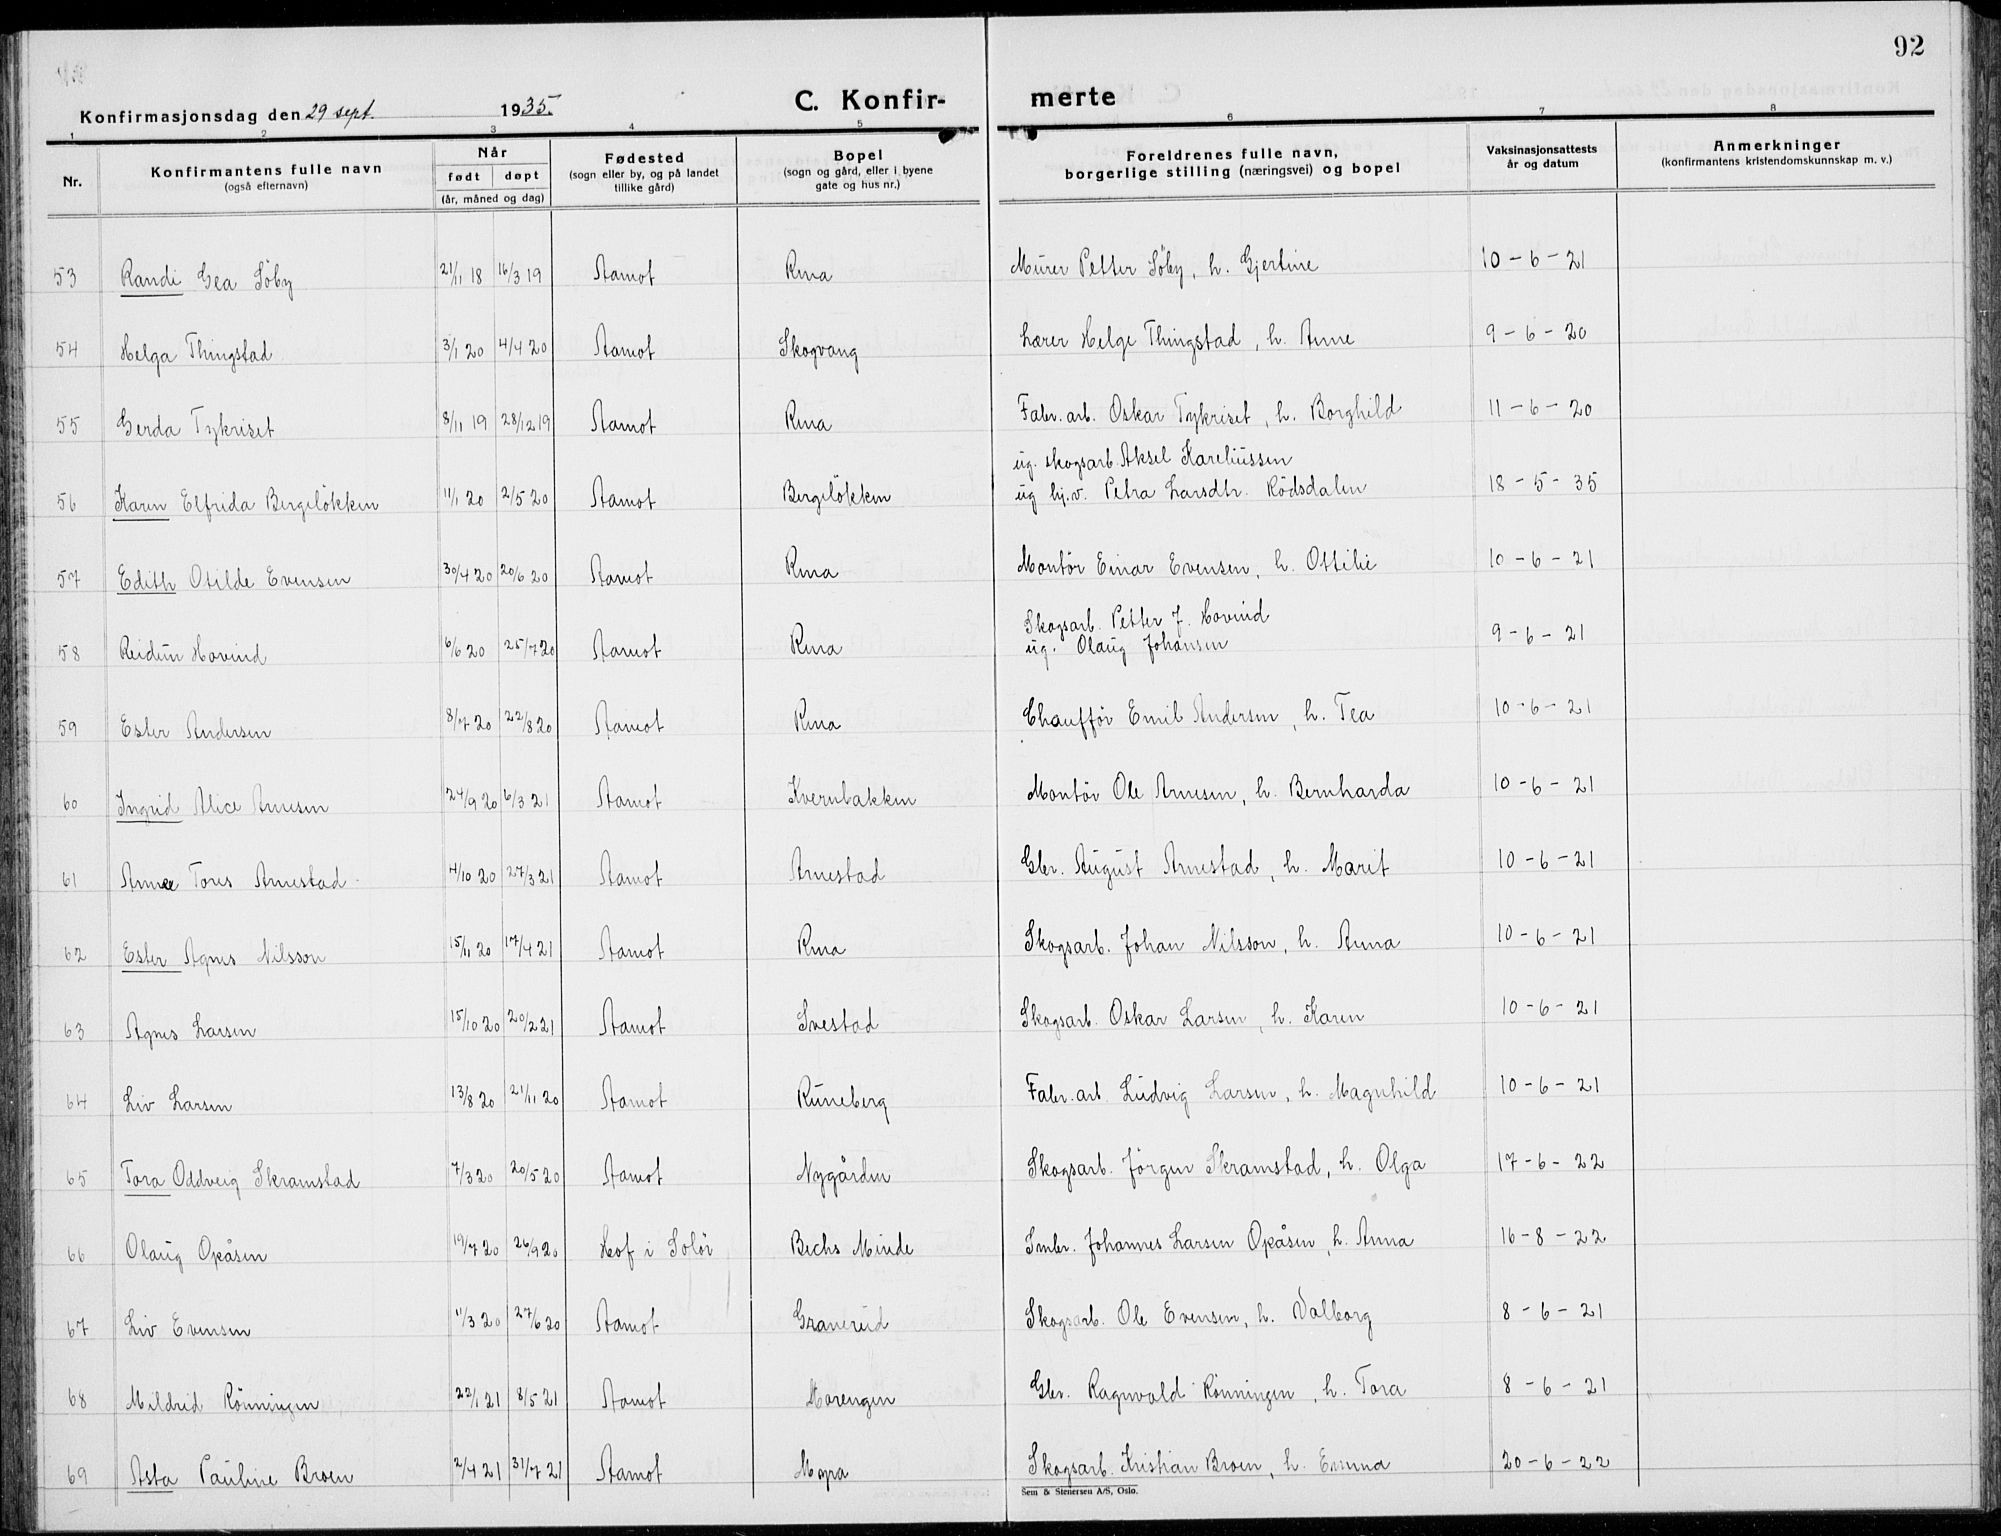 92
Konfirmasjonsdag den 29 sept. 1935. C. Konfir- merte
1 2 3 4 5 6 7 8
Nr. Konfirmantens fulle navn (også efternavn) Når født døpt (år, måned og dag) Fødested (sogn eller by, og på landet tillike gård) Bopel (sogn og gård, eller i byene gate og hus nr.) Foreldrenes fulle navn, borgerlige stilling (næringsvei) og bopel Vaksinasjonsattests år og datum Anmerkninger (konfirmantens kristendomskunnskap m. v.)
53 Randi Gea Söby 21/11 18 16/3 19 Aamot Rena Murer Petter Söby, h. Gjertine 10-6-21
54 Helga Thingstad 3/1 20 4/4 20 Aamot Skogvang Lærer Helge Thingstad, h. Anne 9-6-20
55 Gerda Tykriset 8/11 19 28/12 19 Aamot Rena Fabr. arb. Oskar Tykriset, h. Borghild 11-6-20
ug. skogsarb. Aksel Kareliussen
56 Karen Elfrida Bergelökken 11/1 20 2/5 20 Aamot Bergelökken ug hj.v. Petra Larsdtr. Rödsdalen 18-5-35
57 Edith Otilde Evensen 30/4 20 20/6 20 Aamot Rena Montör Einar Evensen, h. Ottilie 10-6-21
Skogsarb. Petter J. Hovind
58 Reidun Hovind 6/6 20 25/7 20 Aamot Rena ug. Olaug Johansen 9-6-21
59 Ester Andersen 8/7 20 22/8 20 Aamot Rena Chafför Emil Andersen, h. Tea 10-6-21
60 Ingrid Alice Arnesen 24/9 20 6/3 21 Aamot Kvernbakken Montör Ole Arnesen, h. Bernharda 10-6-21
61 Anne Tores Arnestad 4/10 20 27/3 21 Aamot Arnestad Gbr. August Arnestad, h. Marit 10-6-21
62 Ester Agnes Nilsson 15/11 20 17/4 21 Aamot Rena Skogsarb. Johan Nilsson, h. Anna 10-6-21
63 Agnes Larsen 15/10 20 20/2 21 Aamot Ivestad Skogsarb. Oskar Larsen, h. Karen 10-6-21
64 Liv Larsen 13/8 20 21/11 20 Aamot Runeberg Fabr. arb. Ludvig Larsen, h. Magnhild 10-6-21
65 Tora Oddveig Skramstad 7/3 20 20/5 20 Aamot Nygården Skogsarb. Jörgen Skramstad, h. Olga 17-6-22
66 Olaug Opåsen 19/7 20 26/9 20 Hof i Solör Bechs Minde Smbr. Johannes Larsen Opåsen, h. Anna 16-8-22
67 Liv Evensen 11/3 20 27/6 20 Aamot Granerud Skogsarb. Ole Evensen, h. Valborg 8-6-21
68 Mildrid Rönningen 22/1 21 8/5 21 Aamot Horengen Gbr. Ragnvald Rönningen, h. Tora 8-6-21
69 Asta Pauline Broen 2/4 21 31/7 21 Aamot Myra Skogsarb. Kristian Broen, h. Emma 20-6-22
Sem & Stenersen A/S, Oslo.